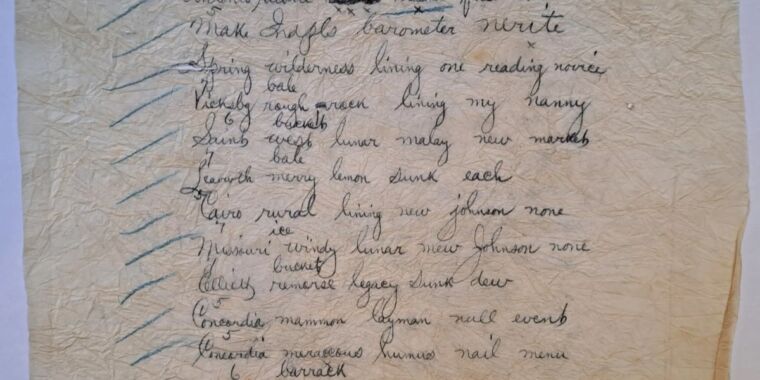 Make Indpls barometer nerite
Spring wilderness lining one reading novice
5 bale
Vicksbg rough rack lining my nanny
6 bucket
Saint west lunar malay new market
7 bale
Leavwth merry lemon sunk each
Cairo rural lining new johnson none
7 ice
Missouri windy lunar mew Johnson none
bucket
Celliets remorse legacy sunk dew
5
Concordia mammon layman null event
5
Concordia meraccous humus nail menu
6 barrack